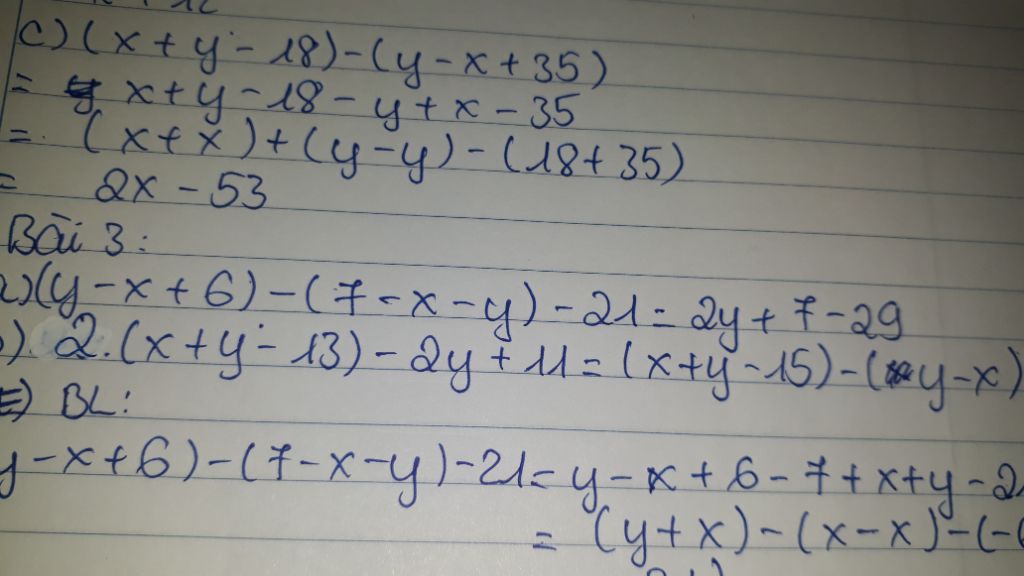 c) (x+y-18)-(y-x+35)
= x+y-18-y+x-35
= (x+x)+(y-y)-(18+35)
= 2x-53
Bài 3:
(y-x+6)-(7-x-y)-21=2y+7-29
2.(x+y-13)-2y+11=(x+y-15)-(y-x)
BL:
y-x+6)-(7-x-y)-21=y-x+6-7+x+y-2
= (y+x)-(x-x)-(-